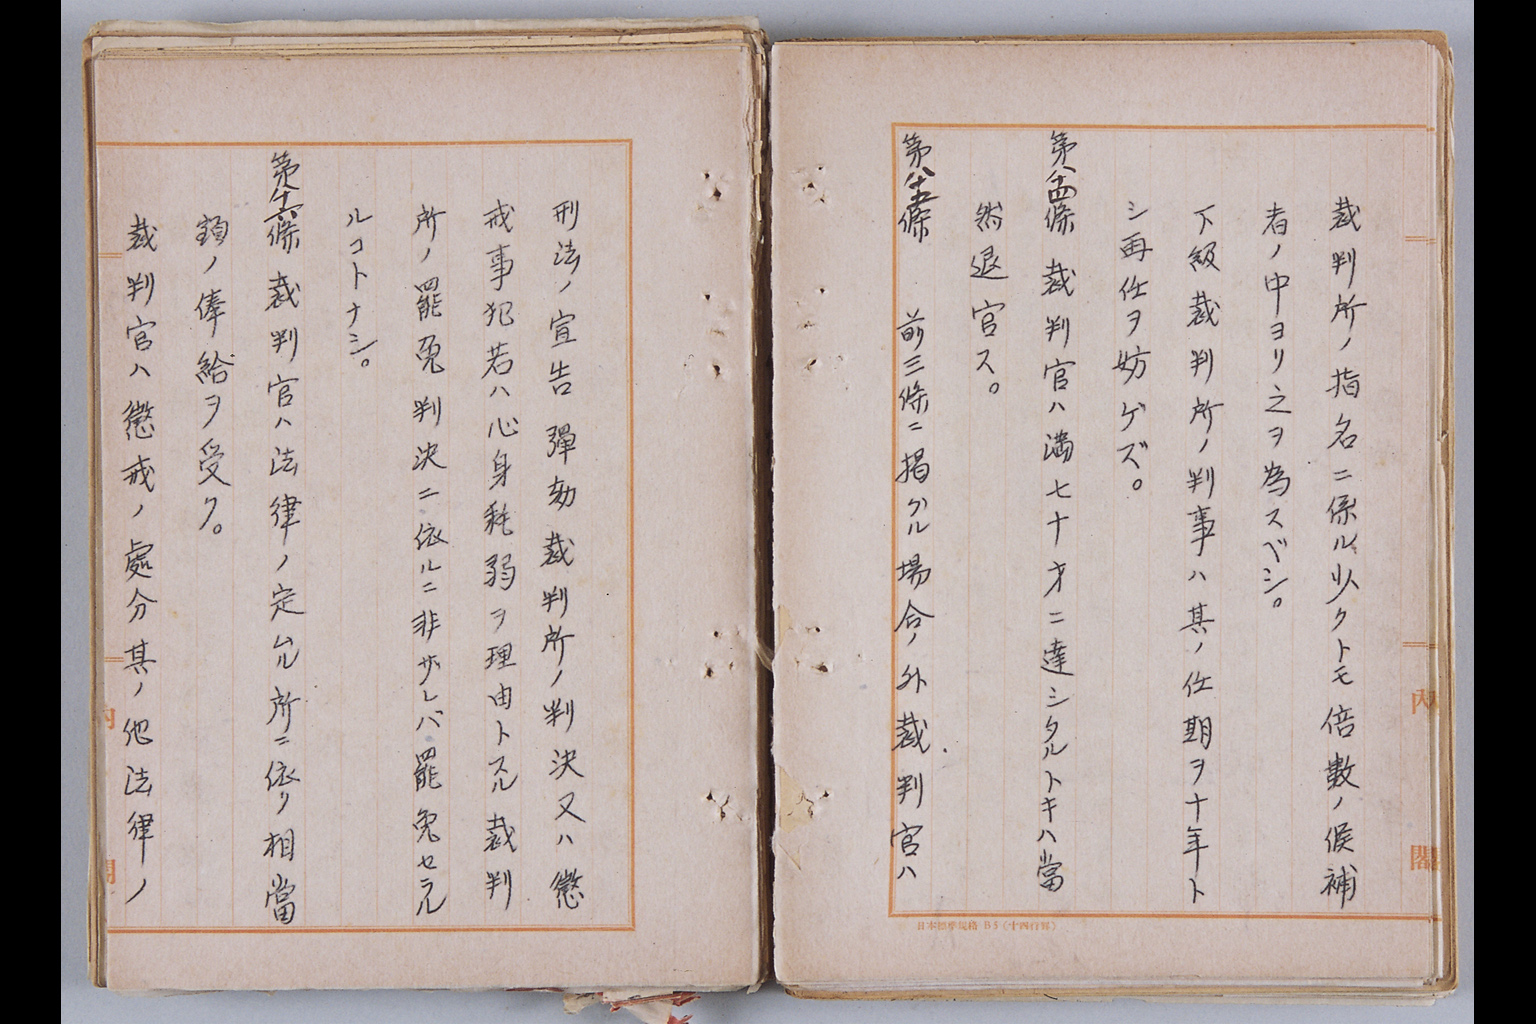 裁判所ノ指名ニ係ル少クトモ倍數ノ候補
者ノ中ヨリ之ヲ為スベシ。
下級裁判所ノ判事ハ其ノ任期ヲ十年ト
シ再任ヲ妨ゲズ。
第八十四條 裁判官ハ満七十才ニ達シタルトキハ當
然退官ス。
第八十五條 前三條ニ掲グル場合ノ外裁判官ハ
内閣
日本標準規格B5(十四行罫)
刑法ノ宣告彈劾裁判所ノ判決又ハ懲
戒事犯若ハ心身耗弱ヲ理由トスル裁判
所ノ罷免判決ニ依ルニ非ザレバ罷免セラル
ルコトナシ。
第八十六條 裁判官ハ法律ノ定ムル所ニ依リ相當
額ノ俸給ヲ受ク。
裁判官ハ懲戒ノ處分其ノ他法律ノ
内閣